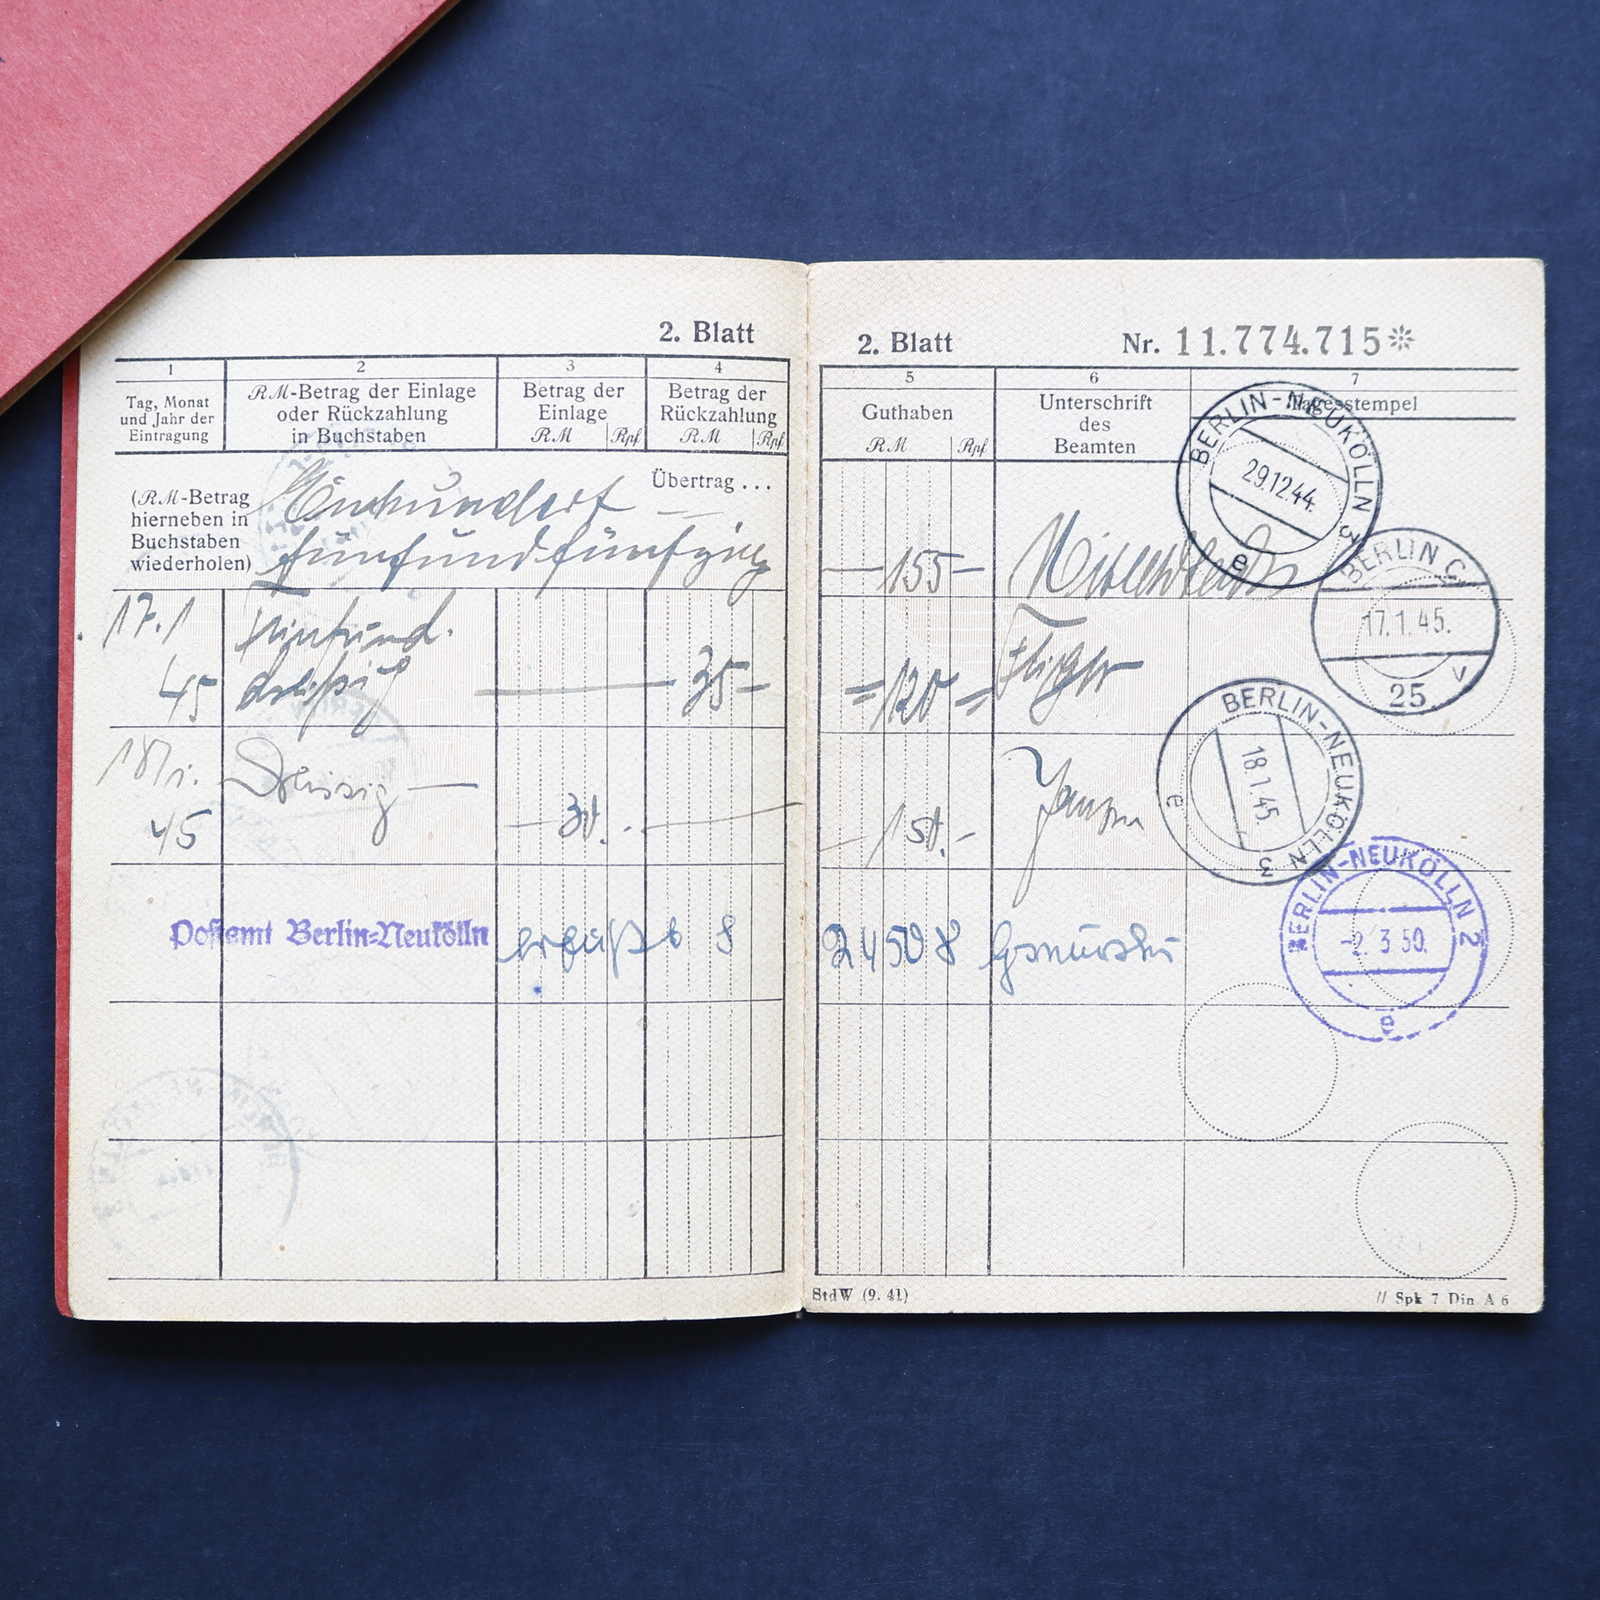 2. Blatt
1 2 3 4
Tag, Monat
und Jahr der
Eintragung
RM-Betrag der Einlage
oder Rückzahlung
in Buchstaben
Betrag der
Einlage
RM Rpf
Betrag der
Rückzahlung
RM Rpf
(RM-Betrag
hierneben in
Buchstaben
wiederholen)
Übertrag ...
Einhundert —
fünfundfünfzig
17.1
45
Fünfund.
dreißig
35 —
18/1.
45
Dreissig —
— 30. —
Postamt Berlin-Neukölln
2. Blatt Nr. 11.774.715*
5 6 7
Guthaben
RM Rpf
Unterschrift
des
Beamten
Tagesstempel
— 155 —
BERLIN-NEUKÖLLN 3
29.12.44.
e
= 120 =
BERLIN C
17.1.45.
v
25
— 150. —
BERLIN-NEUKÖLLN 3
18.1.45
e
BERLIN-NEUKÖLLN 2
-2.3.50.
e
StdW (9. 41)
// Spk 7 Din A 6